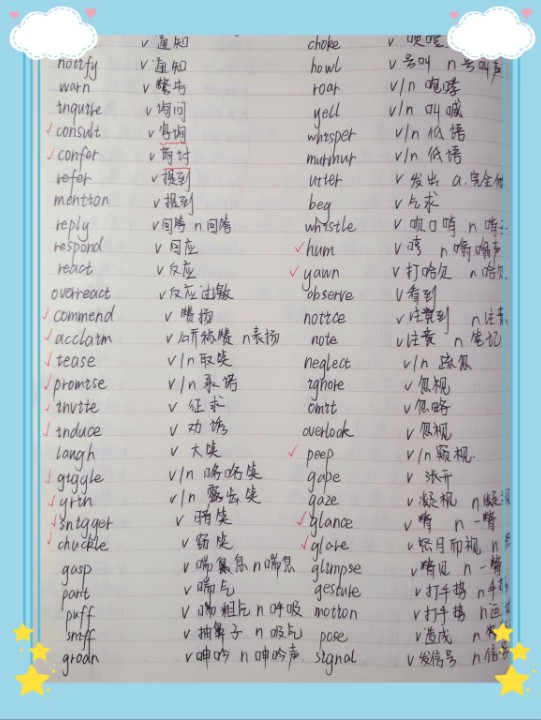 v 通知
notify v 通知
warn v 警告
inquire v 询问
consult v 咨询
confer v 商讨
refer v 提到
mention v 提到
reply v 回答 n 回答
respond v 回应
react v 反应
overreact v 反应过敏
commend v 赞扬
acclaim v/n 称赞 n 表扬
tease v/n 取笑
promise v/n 承诺
invite v 征求
induce v 劝诱
laugh v 大笑
giggle v/n 咯咯笑
grin v/n 露齿笑
snigger v 暗笑
chuckle v 窃笑
gasp v 喘气 n 喘息
pant v 喘气
puff v 喘粗气 n 呼吸
sniff v 抽鼻子 n 吸气
groan v 呻吟 n 呻吟声
choke v
howl v 号叫 n 号叫声
roar v/n 咆哮
yell v/n 叫喊
whisper v/n 低语
murmur v/n 低语
utter v 发出 a.完全
beg v 乞求
whistle v 吹口哨 n 哨
hum v 哼 n 嗡嗡声
yawn v 打哈欠 n 哈欠
observe v 看到
notice v 注意到 n 注意
note v 注意 n 笔记
neglect v/n 疏忽
ignore v 忽视
omit v 忽略
overlook v 忽视
peep v/n 窥视
gape v 张开
gaze v 凝视 n 凝视
glance v 瞥 n 一瞥
glare v 怒目而视 n
glimpse v 瞥见 n 一瞥
gesture v 打手势 n 手
motion v 打手势 n
pose v 造成 n
signal v 发信号 n 信号